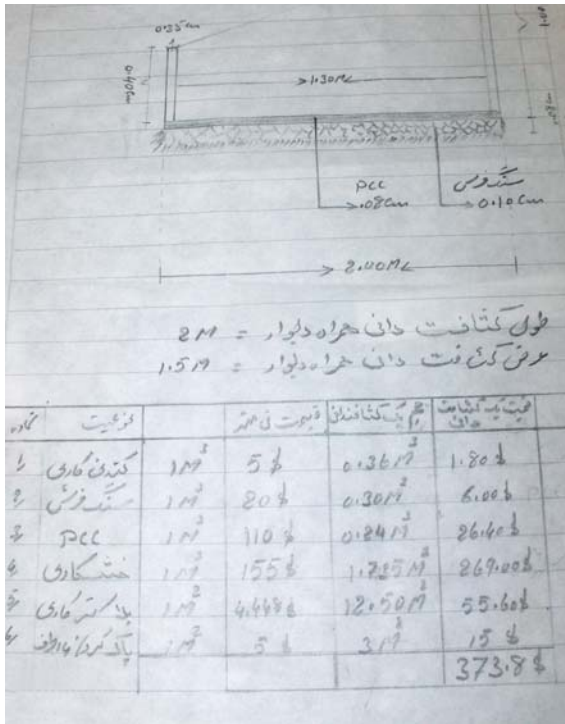 0.35cm
1.00
0.40cm
1.30M
PCC
سنگ فرش
.08cm
0.10cm
2.00M
طول کثافت دانی همراه دیوار = 2M
عرض کثافت دانی همراه دیوار = 1.5M
نوعیت قیمت فی متر حجم یک کثافتدانی قیمت یک کثافت دانی
1 کندن کاری 1M³ 5$ 0.36M³ 1.80$
2 سنگ فرش 1M³ 20$ 0.30M³ 6.00$
3 PCC 1M³ 110$ 0.24M³ 26.40$
4 خشت کاری 1M³ 155$ 1.735M³ 269.00$
5 پلاسترکاری 1M² 4.448$ 12.50M² 55.60$
1M² 5$ 3M² 15$
373.8$